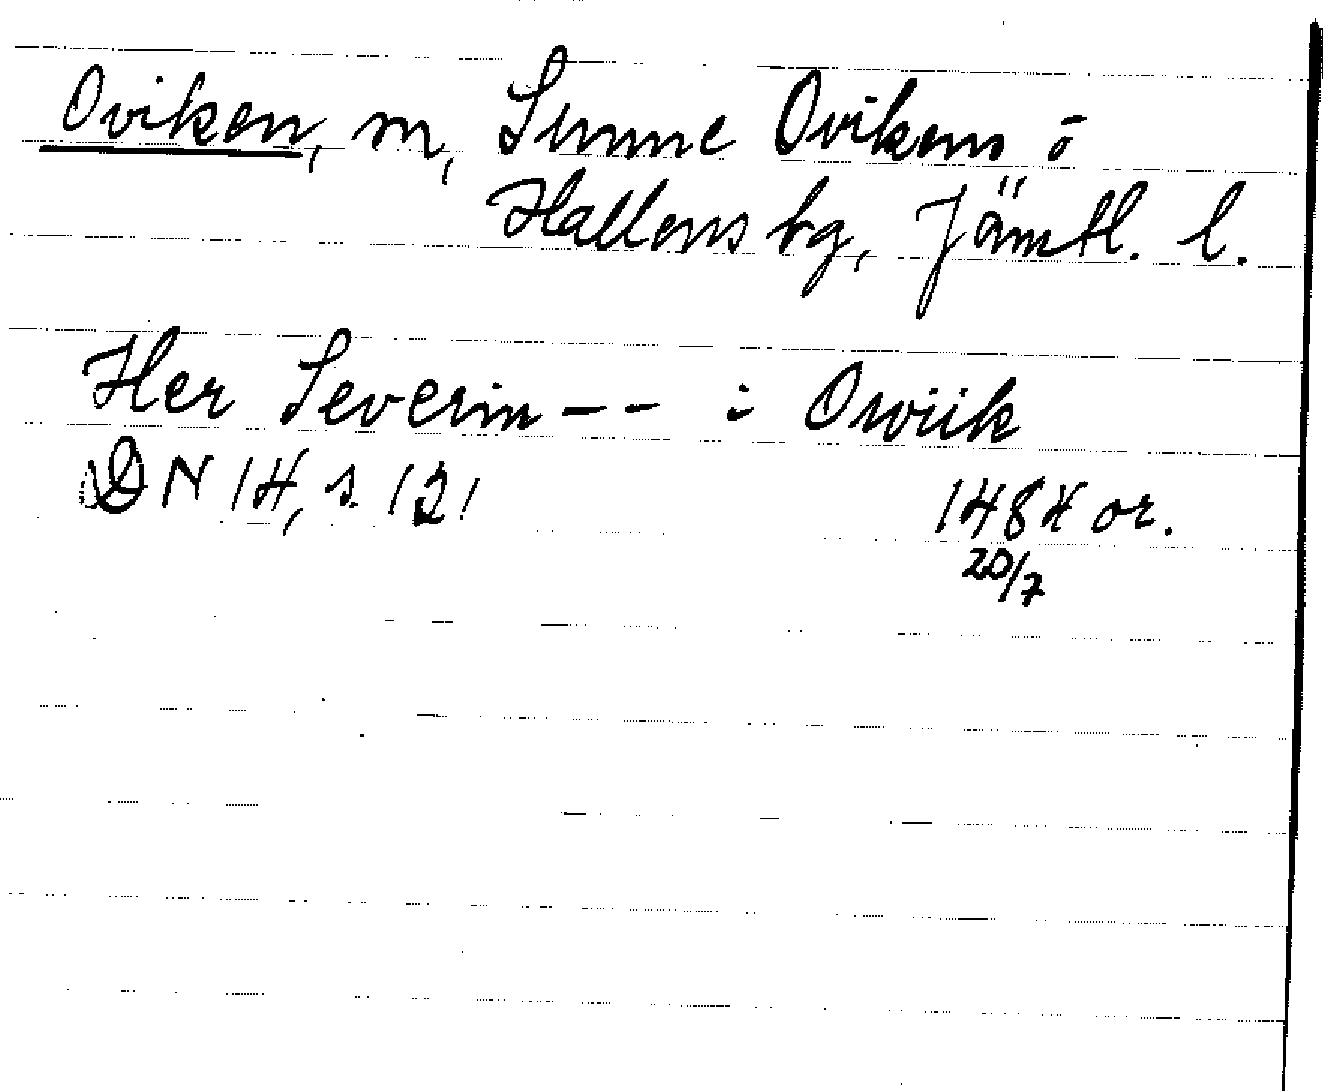 Oviken, sn, Sunne Oviken o
Hallens tg, Jämtl. l.
Her Severin -- i Orviik
DN 14, s. 121 1484 or.
20/7